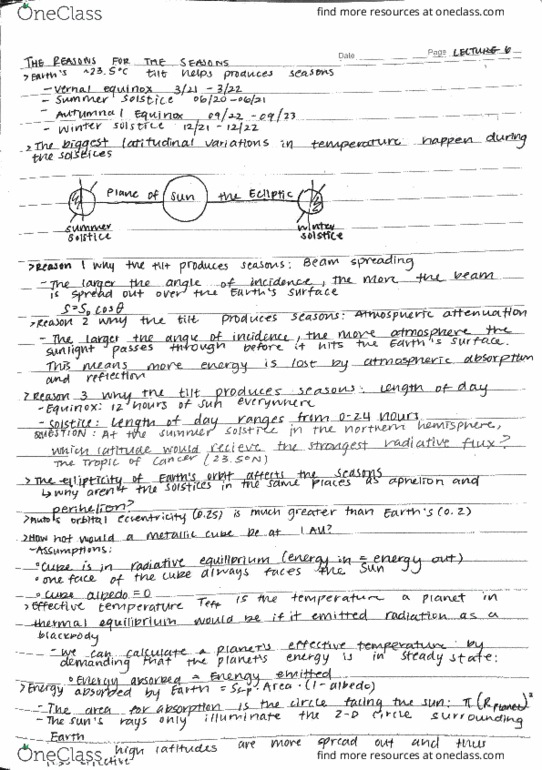 OneClass
find more resources at oneclass.com
Date
Page LECTURE 6
THE REASONS FOR THE SEASONS
>Earth's ~23.5°C tilt helps produces seasons
- Vernal equinox 3/21 - 3/22
- Summer solstice 06/20 - 06/21
- Autumnal Equinox 09/22 - 09/23
- Winter solstice 12/21 - 12/22
>The biggest latitudinal variations in temperature happen during
the solstices
Plane of Sun the Ecliptic
summer solstice
winter solstice
>Reason 1 why the tilt produces seasons: Beam spreading
- The larger the angle of incidence, the more the beam
is spread out over the Earth's surface
S=S₀ cosθ
>Reason 2 why the tilt produces seasons: Atmospheric attenuation
- The larger the angle of incidence, the more atmosphere the
sunlight passes through before it hits the Earth's surface.
This means more energy is lost by atmospheric absorption
and reflection
>Reason 3 why the tilt produces seasons: Length of day
- Equinox: 12 hours of sun everywhere
- Solstice: Length of day ranges from 0-24 hours
QUESTION: At the summer solstice in the northern hemisphere,
which latitude would recieve the strongest radiative flux?
The Tropic of Cancer (23.5°N)
>The ellipticity of Earth's orbit affects the seasons
↳ why aren't the solstices in the same places as aphelion and
perihelion?
>Pluto's orbital eccentricity (0.25) is much greater than Earth's (0.2)
>How hot would a metallic cube be at 1 AU?
- Assumptions:
• Cube is in radiative equilibrium (energy in = energy out)
• one face of the cube always faces the Sun
• Cube albedo = 0
>Effective temperature Teff is the temperature a planet in
thermal equilibrium would be if it emitted radiation as a
blackbody
- we can calculate a planet's effective temperature by
demanding that the planet's energy is in steady state:
• Energy absorbed = Energy emitted
>Energy absorbed by Earth = · Area · (1 - albedo)
- The area for absorption is the circle facing the sun: π(Rplanet)²
- The sun's rays only illuminate the 2-D circle surrounding
Earth
high latitudes are more spread out and thus
OneClass
find more resources at oneclass.com